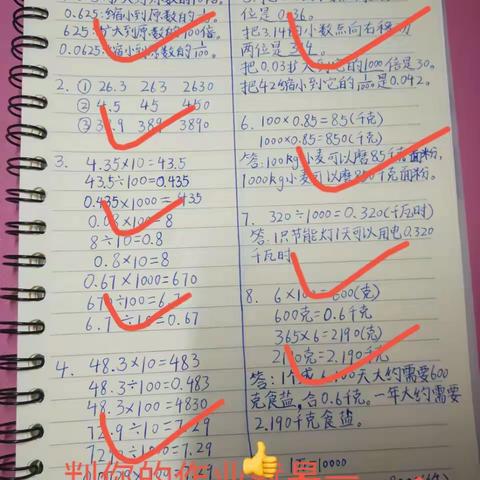 0.625:缩小到原数的
625:扩大到原数的100倍.
0.0625:缩小到原数的1/100.
2. ① 26.3 263 2630
② 4.5 45 450
③ 38.9 389 3890
3.
4.35×10=43.5
43.5÷100=0.435
0.435×1000=435
0.08×100=8
8÷10=0.8
0.8×10=8
0.67×1000=670
670÷100=6.7
6.7÷10=0.67
4. 48.3×10=483
48.3÷100=0.483
48.3×100=4830
72.9÷10=7.29
位是0.36。
把3.14的小数点向右移动
两位是314
把0.03扩大到它的1000倍是30。
把42缩小到它的1/1000是0.042。
6. 100×0.85=85(千克)
1000×0.85=850(千克)
答:100kg小麦可以磨85千克面粉,
1000kg小麦可以磨850千克面粉。
7. 320÷1000=0.320(千瓦时)
答:1只节能灯1天可以用电0.320
千瓦时
8. 6×100=600(克)
600克=0.6千克
365×6=2190(克)
2190克=2.190千克
答:1个成人100天大约需要600
克食盐,合0.6千克。一年大约需要
2.190千克食盐。